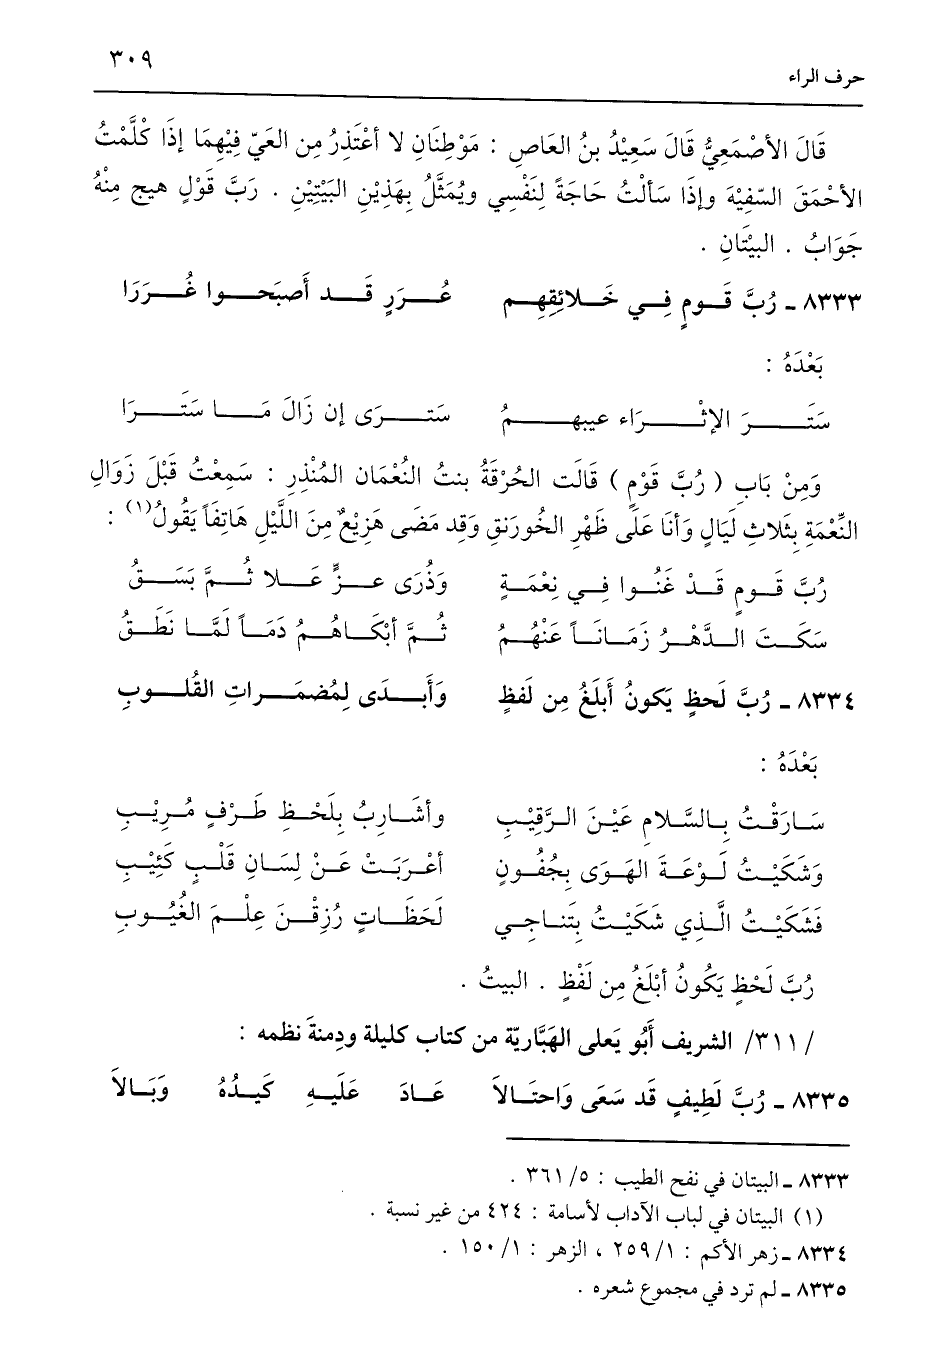 حرف الراء ٣٠٩
قَالَ الأصْمَعِيُّ قَالَ سَعِيْدُ بنُ العَاصِ : مَوْطِنَانِ لا أعْتَذِرُ مِن العَيّ فِيْهِمَا إذَا كَلَّمْتُ
الأحْمَقَ السَّفِيْهَ وإذَا سَألْتُ حَاجَةً لِنَفْسِي ويُمَثَّلُ بِهَذِينِ البَيْتِيْنِ . رَبَّ قَوْلٍ هيج مِنْهُ
جَوَابُ . البَيْتَانِ .
٨٣٣٣ ـ رُبَّ قَومٍ فِي خَلائِقِهِم عُرَرٍ قَد أَصبَحوا غُرَرَا
بَعْدَهُ :
سَتَرَ الإثْرَاء عيبهمُ سَترَى إن زَالَ مَا سَتَرَا
وَمِنْ بَابِ ( رُبَّ قَوْمٍ ) قَالَت الحُرْقَةُ بنتُ النُعْمَان المُنْذِرِ : سَمِعْتُ قَبْلَ زَوَالِ
النِّعْمَةِ بِثَلاثِ لَيَالٍ وَأنَا عَلَى ظَهْرِ الخُورَنقِ وَقَد مَضَى هَزِيْعٌ مِنَ اللَّيْلِ هَاتِفَاً يَقُولُ(١) :
رُبَّ قَومٍ قَدْ غَنُوا فِي نِعْمَةٍ وَذُرَى عزٍّ عَلا ثُمَّ بَسَقُ
سَكَتَ الدَّهْرُ زَمَانَاً عَنْهُمُ ثُمَّ أبْكَاهُمُ دَمَاً لَمَّا نَطَقُ
٨٣٣٤ ـ رُبَّ لَحظٍ يَكونُ أَبلَغُ مِن لَفظٍ وَأَبدَى لِمُضمَراتِ القُلوبِ
بَعْدَهُ :
سَارَقْتُ بِالسَّلامِ عَيْنَ الرَّقِيْبِ وأشَاربُ بِلَحْظِ طَرْفٍ مُرِيْبِ
وَشَكَيْتُ لَوْعَةَ الهَوَى بِجُفُونٍ أعْرَبَتْ عَنْ لِسَانِ قَلْبٍ كَئِيْبِ
فَشَكَيْتُ الَّذِي شَكَيْتُ بِتَناجِي لَحَظَاتٍ رُزِقْنَ عِلْمَ الغُيُوبِ
رُبَّ لَحْظٍ يَكُونُ أبْلَغُ مِن لَفْظٍ . البيتُ .
/ ٣١١/ الشريف أَبُو يَعلى الهَبَّاريّة من كتاب كليلة ودِمنةَ نظمه :
٨٣٣٥ ـ رُبَّ لَطِيفٍ قَد سَعَى وَاحتَالاَ عَادَ عَلَيهِ كَيدُهُ وَبَالاَ
٨٣٣٣ ـ البيتان في نفح الطيب : ٥/ ٣٦١ .
(١) البيتان في لباب الآداب لأسامة : ٤٢٤ من غير نسبة .
٨٣٣٤ ـ زهر الأكم : ١/ ٢٥٩ ، الزهر : ١/ ١٥٠ .
٨٣٣٥ ـ لم ترد في مجموع شعره .